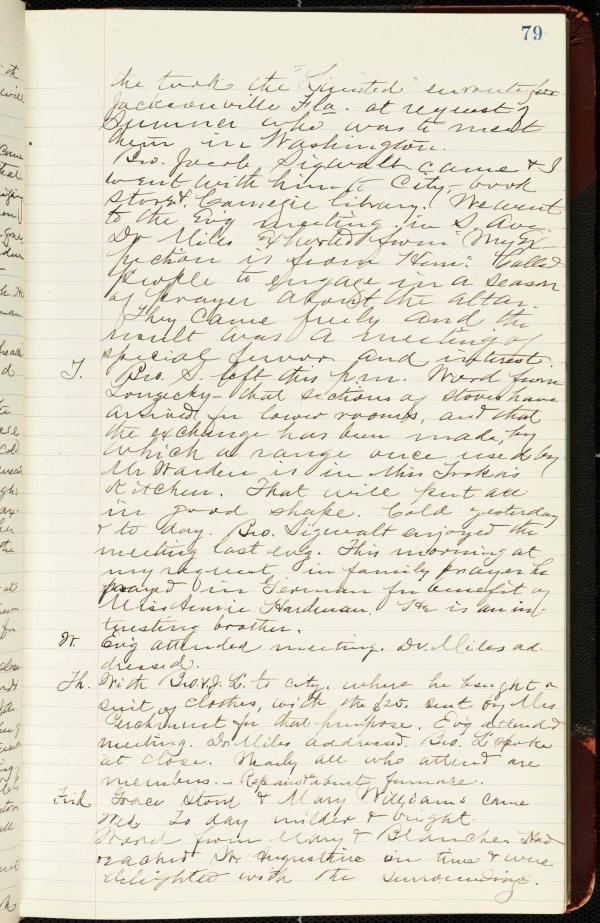 79
the took the "Limited" enroute for
Jacksonville Fla. at request of
Sumner who was to meet
them in Washington.
Bro. Jacob Sigwalt came & I
went with him to City, book
store & Carnegie library. We went
to the Evg meeting in S. Ave.
Dr Miles exhorted from "My
is from Him". Called
people to engage in a season
of prayer about the altar.
They came freely and the
result was a meeting of
special fervor and interest.
T. Bro. S. left this p.m. Word from
that sections of stove have
arrived for lower rooms, and that
the exchange has been made, by
which a range once used by
Mr Warden is in Miss
Kitchen. That will put all
in good shape. Cold yesterday
& to day. Bro. Sigwalt enjoyed the
meeting last evg. This morning at
my request, in family prayer he
prayed in German for benefit of
Miss Hardman. He is an in-
teresting brother.
W. Evg attended meeting. Dr. Miles ad-
dressed.
Th. With Bro. V. J. L. to city, where he bought a
suit of clothes, with the $25. sent by Mrs
for that purpose. Evg attended
meeting. Dr Miles addressed. Bro. L spoke
at close. Nearly all who attend are
members. - Repaired furnace.
Frid. Grace Stone & Mary Williams came
Wed. To day milder & bright.
Word from Mary & Blanche. Had
reached St. Augustine on time & were
delighted with the surroundings.